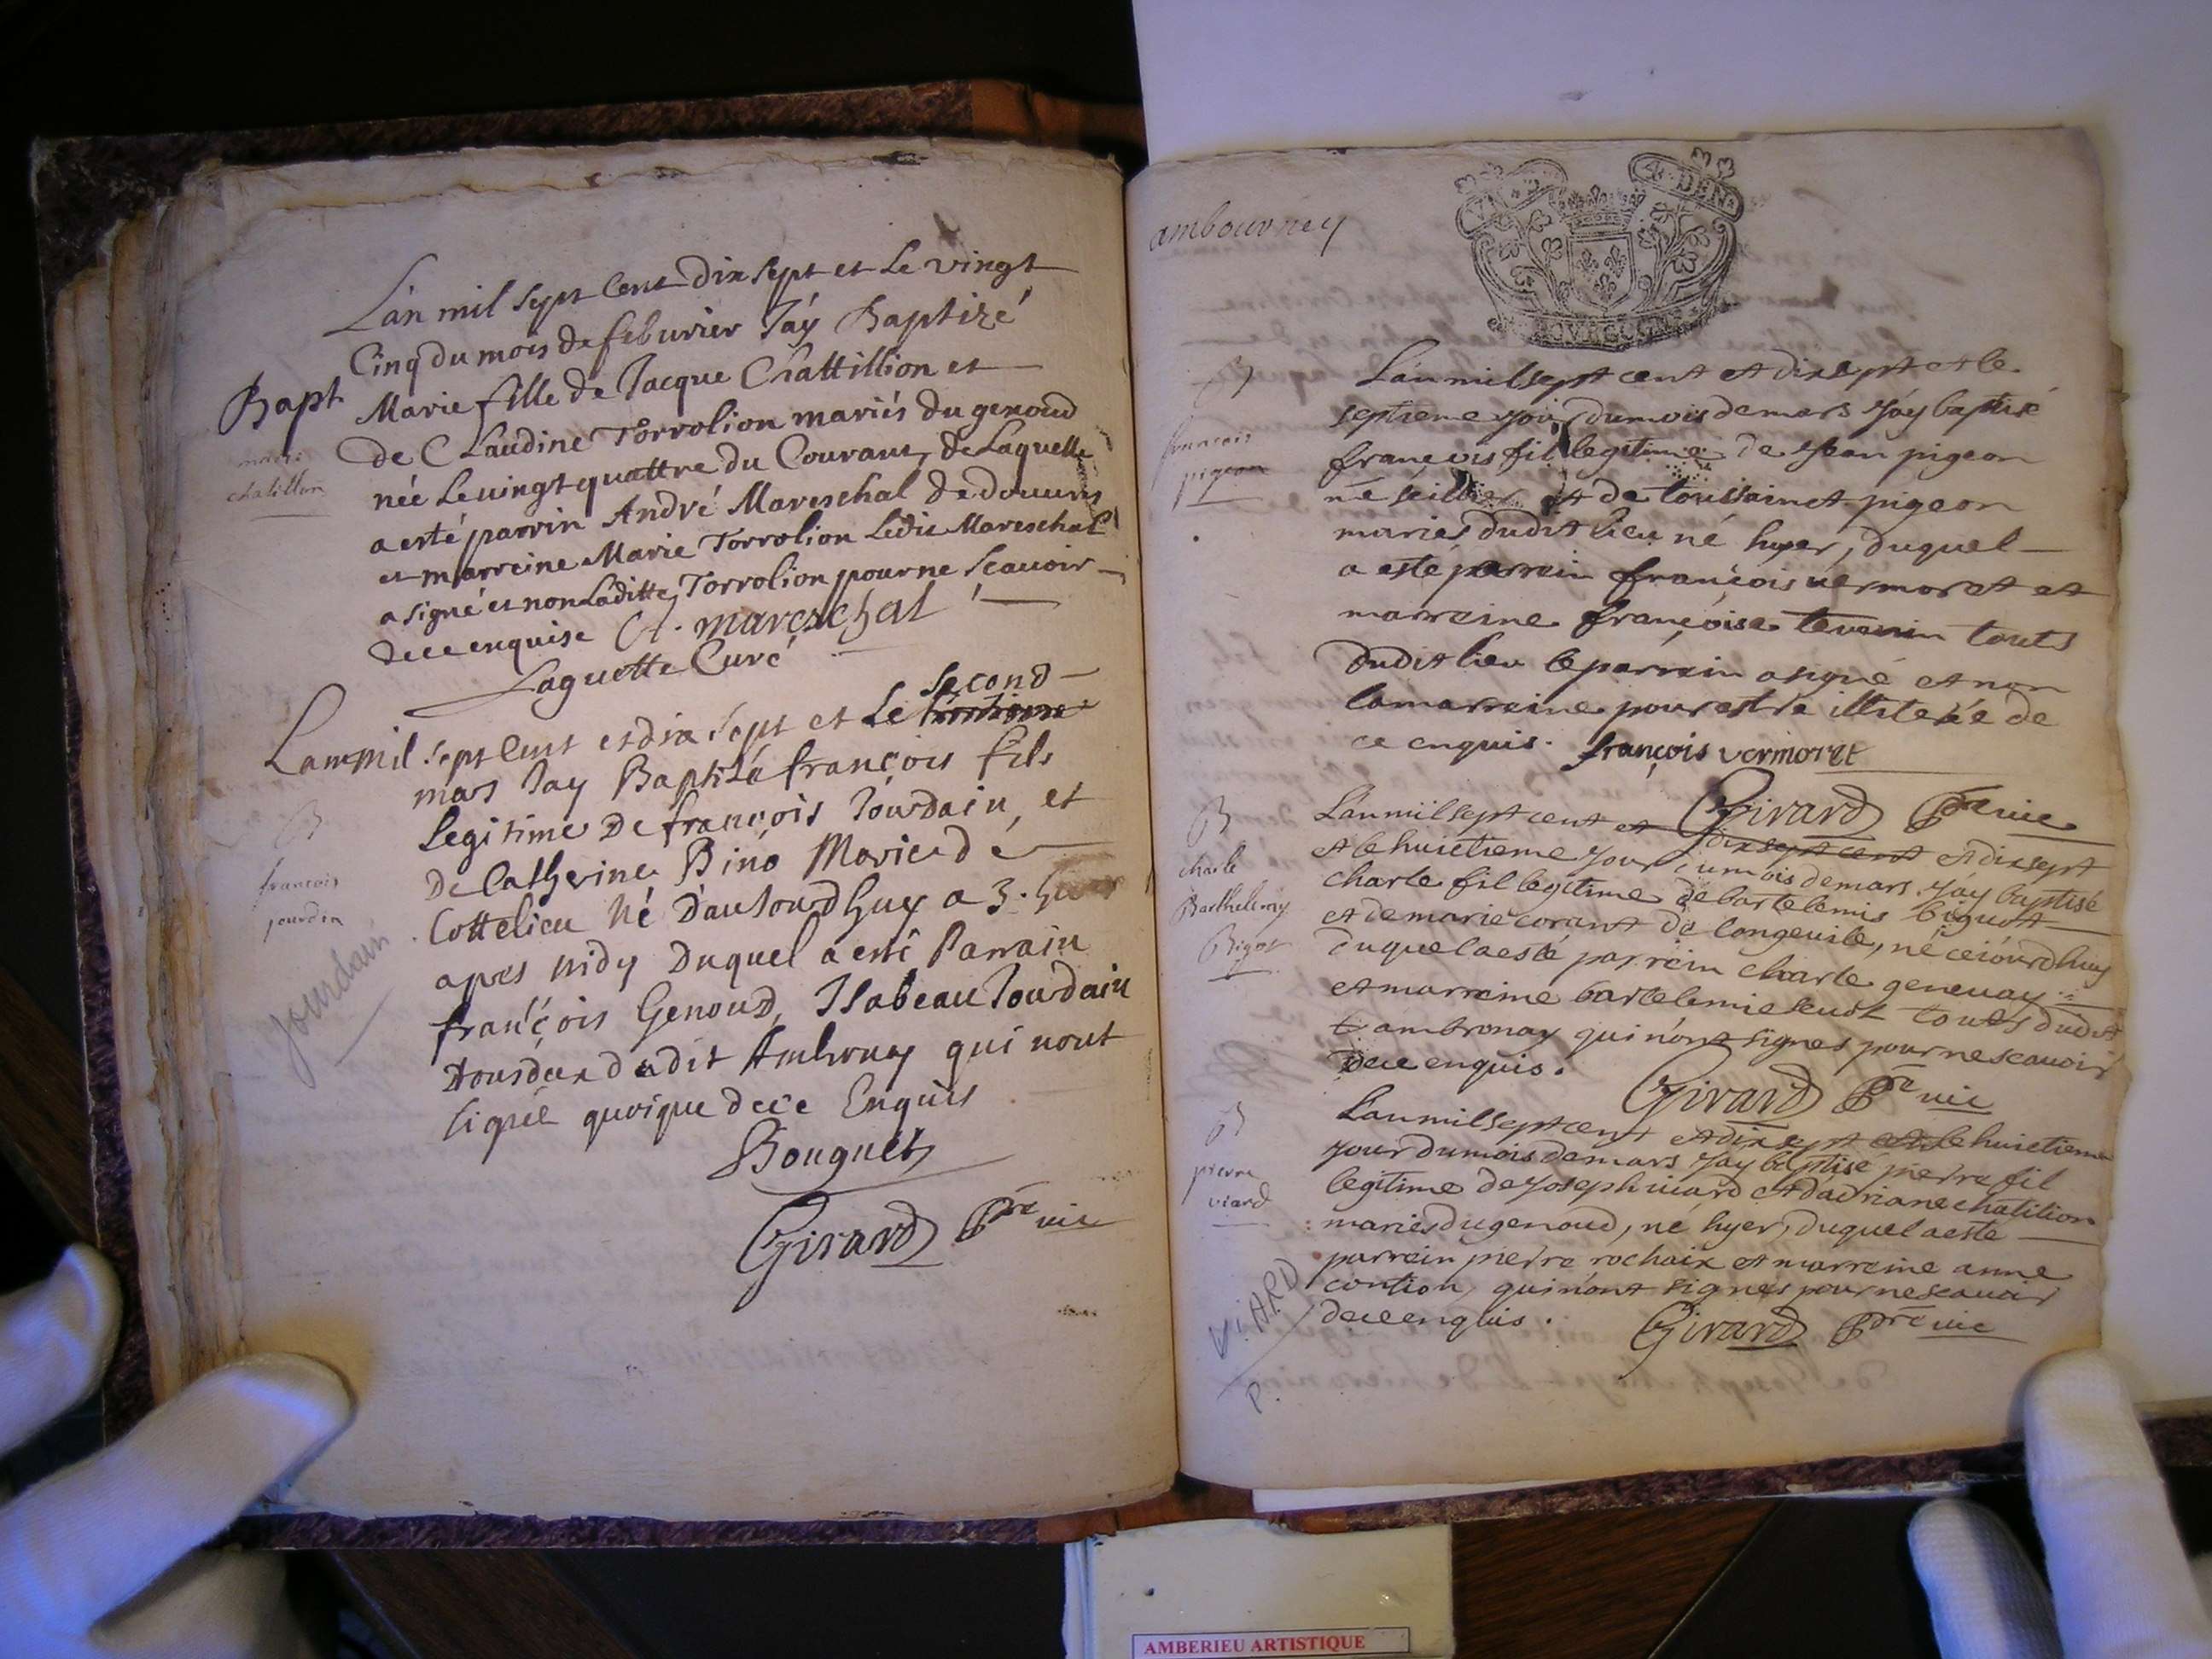 L'an mil sept cent dix sept et Le vingt
Cinq du mois de feburier J'ay Baptizé
Bapt
Marie fille de Jacque Chattillion et
de CLaudine Torrolion mariés du genoud
marie
chatillon
née Le uingt quattre du Courant, de Laquelle
a esté parrin André Mareschal de douures
et marreine Marie Torrolion Ledit Mareschal
a signé et non Laditte Torrolion pour ne Scauoir
de ce enquise A. mareschal
Laguette Curé
second
Lan mil sept Cent et dix sept et Le
mars Jay Baptizé françois fils
Legitime De françois Jourdain, et
B
francois
jourdin
De Catherine Bino Marié dé
Cotte lieu Né D'aujourdhuy a 3. heures
Jourdain
apres midy Duquel a esté Parrain
françois Genoud, Isabeau Jourdain
tous deux dudit Ambronay qui nont
signé quoique de ce Enquis
Bouguet
Girard Ptre uic
ambournay
A. DEN.
BOVRGOGNE
B
francois
pigeon
Lan mil sept cent et dix sept et le
septieme jour du mois de mars j'ay baptisé
françois fil legitime de Jean pigeon
et de toussainct pigeon
mariés dudit lieu né hyer, duquel
a esté parrain françois uermoret et
marreine françoise tts
dudit lieu le parrain a signé et non
la marreine pour estre illiterée de
ce enquis. françois vermoret
Girard Ptre uic
B
charle
Barthelemy
Bigot
L'an mil sept cent et dix sept cent et dix sept
et le huictieme jour du mois de mars j'ay baptisé
charle fil legitime de bartelemis biguot
et de marie corant de longeuile, né ceiourdhuy
duquel a esté parrein charle geneuay
et marreine bartelemie touts dudit
ambronay qui n'ont signes pour ne scauoir
de ce enquis.
Girard Ptre uic
B
pierre
viard
L'an mil sept cent et dix sept et le huictieme
jour du mois de mars j'ay baptisé pierre fil
legitime de Joseph uiard et d'adriane chatilion
mariés du genoud, né hyer, duquel a esté
parrein pierre rochaix et marreine anne
contion, qui n'ont signés pour ne scauoir
de ce enquis.
Girard Ptre uic
ViARD
P.
AMBERIEU ARTISTIQUE